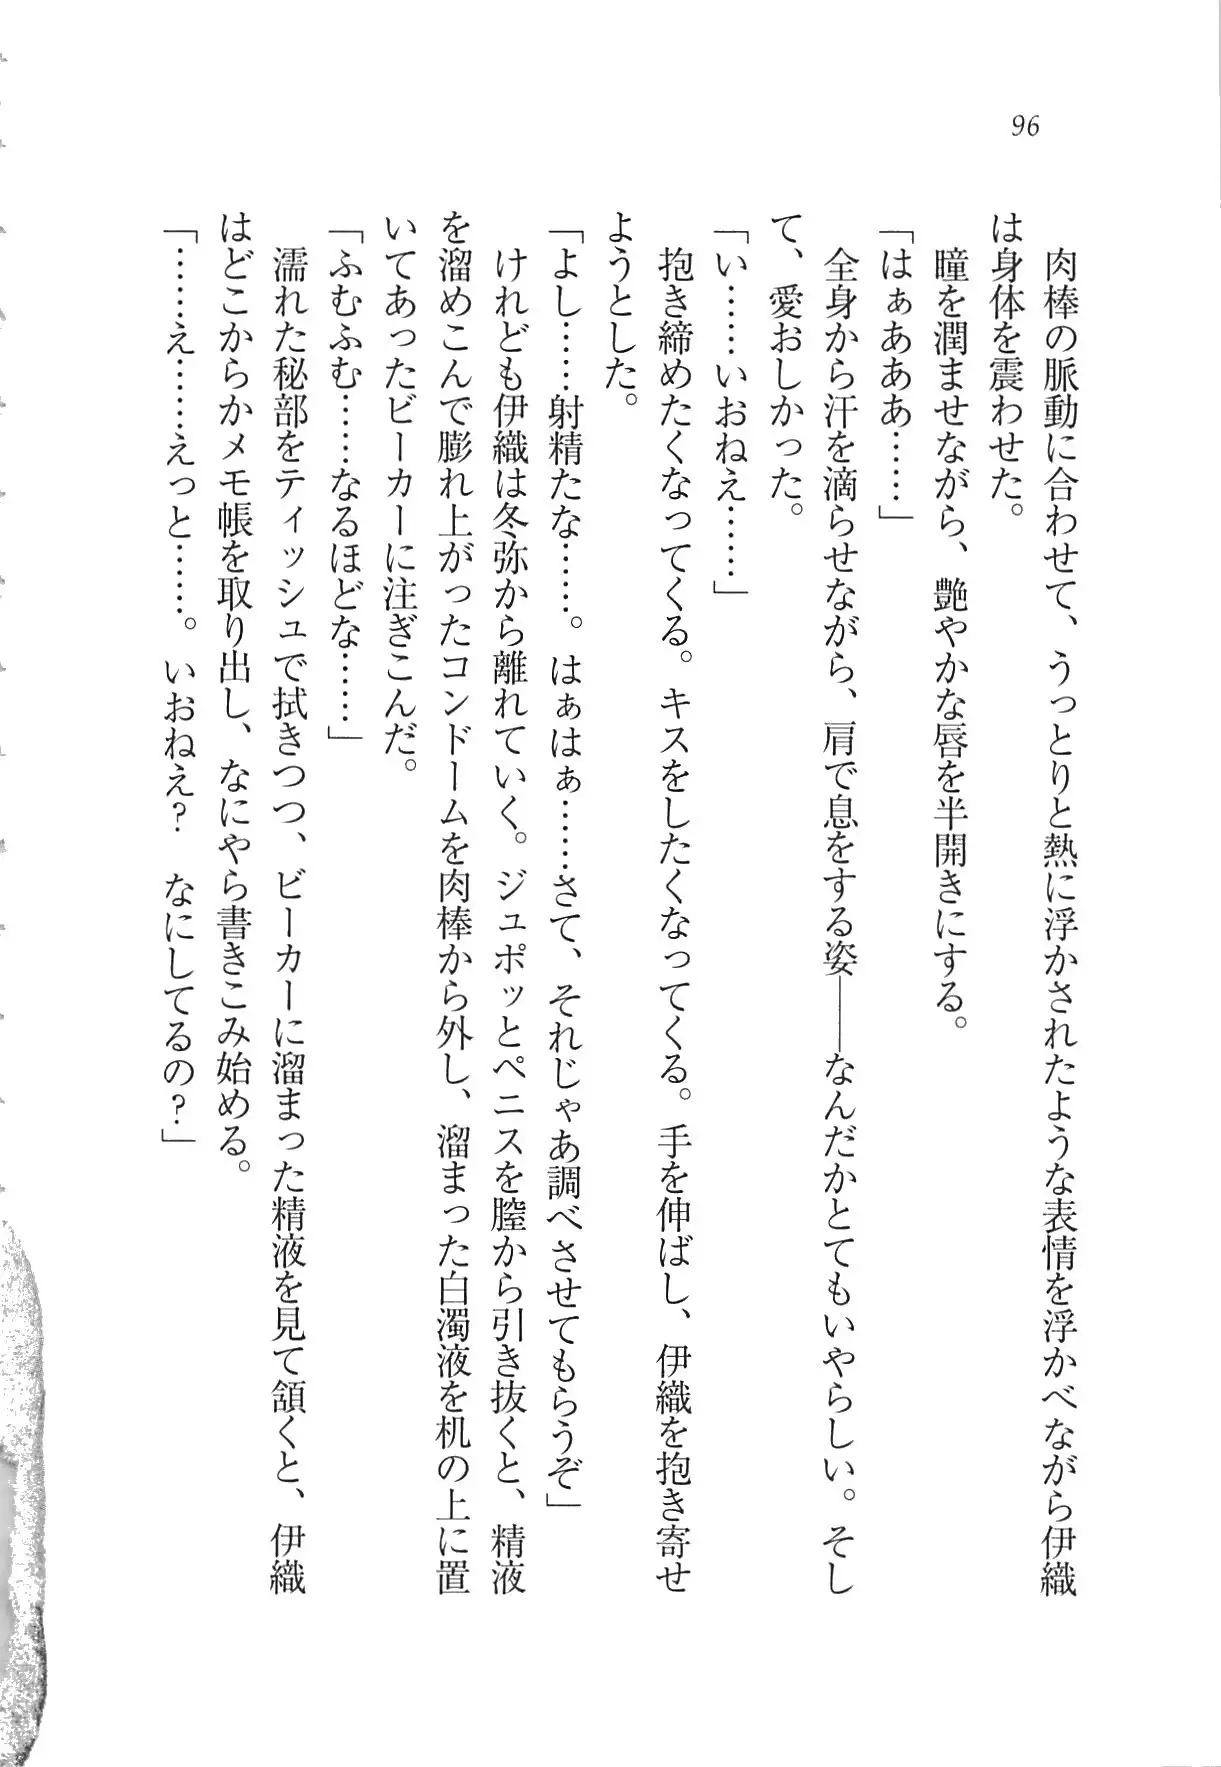 96
肉棒の脈動に合わせて、うっとりと熱に浮かされたような表情を浮かべながら伊織
は身体を震わせた。
瞳を潤ませながら、艶やかな唇を半開きにする。
「はぁあああ……」
全身から汗を滴らせながら、肩で息をする姿――なんだかとてもいやらしい。そし
て、愛おしかった。
「い……いおねえ……」
抱き締めたくなってくる。キスをしたくなってくる。手を伸ばし、伊織を抱き寄せ
ようとした。
「よし……射精たな……。はぁはぁ……さて、それじゃあ調べさせてもらうぞ」
けれども伊織は冬弥から離れていく。ジュポッとペニスを膣から引き抜くと、精液
を溜めこんで膨れ上がったコンドームを肉棒から外し、溜まった白濁液を机の上に置
いてあったビーカーに注ぎこんだ。
「ふむふむ……なるほどな……」
濡れた秘部をティッシュで拭きつつ、ビーカーに溜まった精液を見て頷くと、伊織
はどこからかメモ帳を取り出し、なにやら書きこみ始める。
「……え……えっと……。いおねえ？　なにしてるの？」